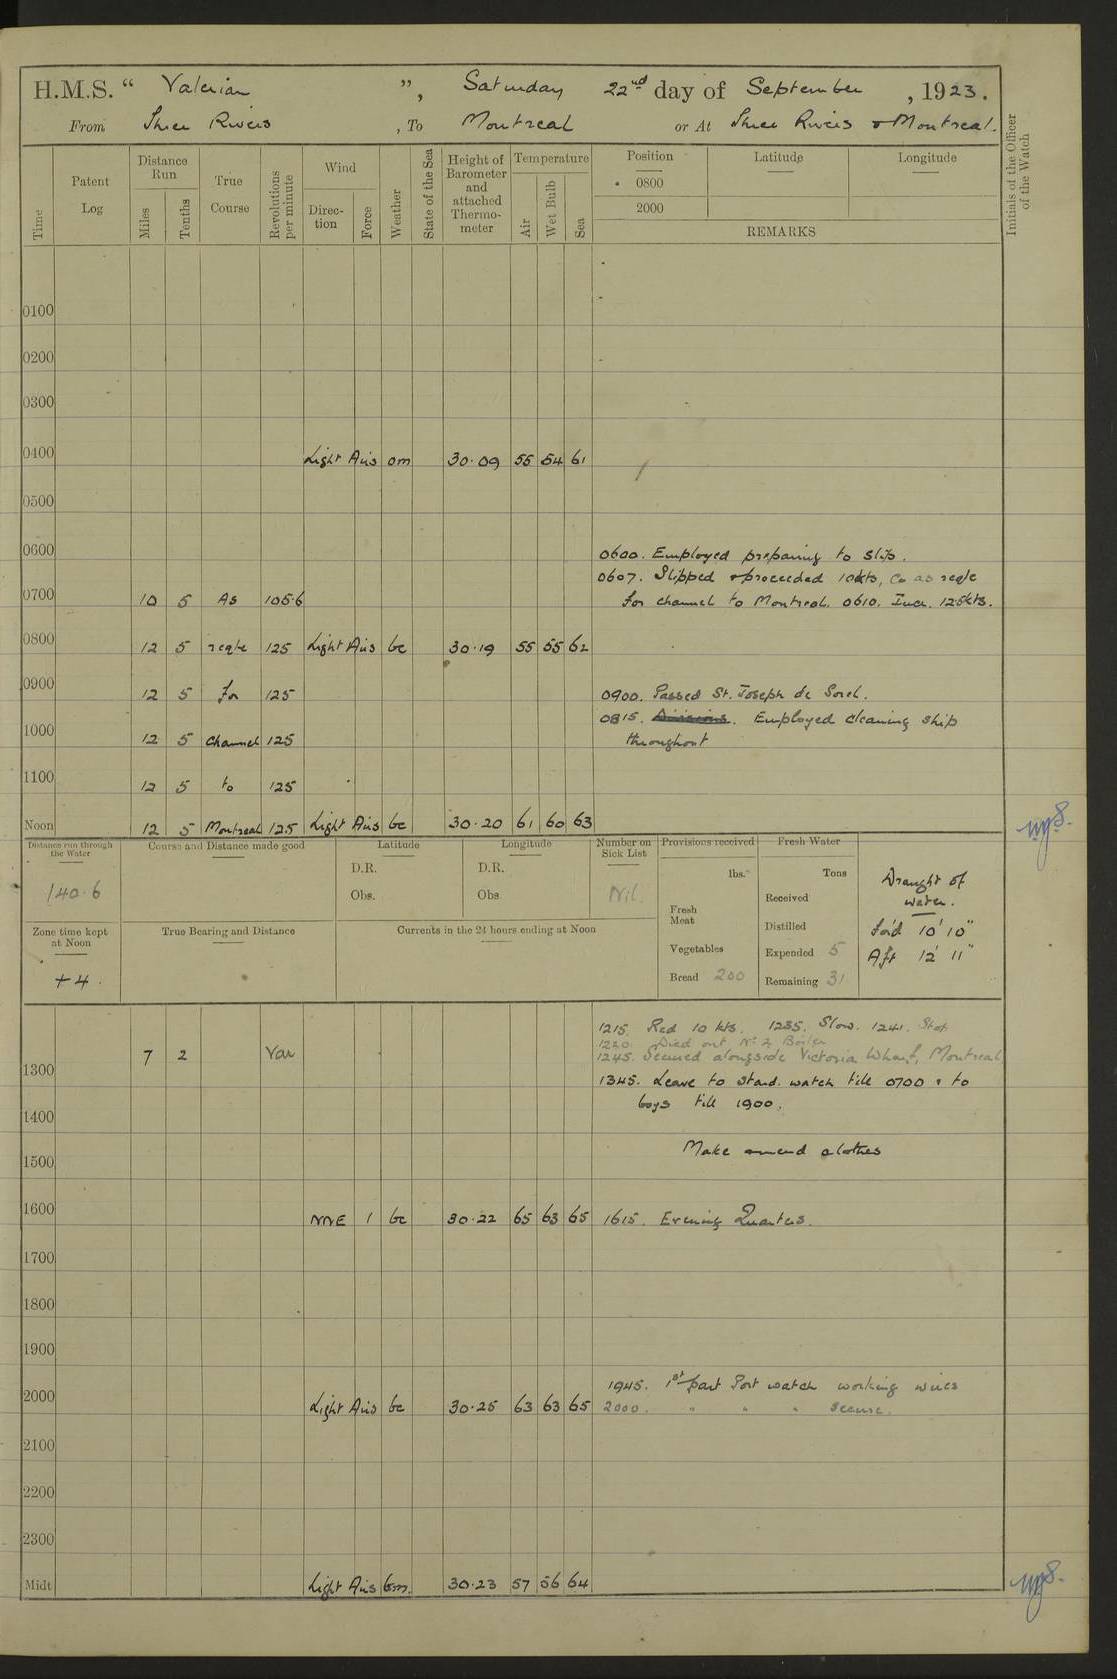 H.M.S. “ Valerian ”, Saturday 22nd day of September, 1923.
From Three Rivers, To Montreal or At Three Rivers & Montreal.
Time
Patent Log
Distance Run
Miles
Tenths
True Course
Revolutions per minute
Wind
Direction
Force
Weather
State of the Sea
Height of Barometer and attached Thermometer
Temperature
Air
Wet Bulb
Sea
Position
Latitude
Longitude
0800
2000
REMARKS
Initials of the Officer of the Watch
0100
0200
0300
0400 Light Airs om 30·09 55 54 61
0500
0600 0600. Employed preparing to slip.
0607. Slipped & proceeded 10kts, Co as reqte
0700 10 5 As 105·6 for channel to Montreal. 0610. Incr. 12·5kts.
0800 12 5 reqte 125 Light Airs bc 30·19 55 55 62
0900 12 5 for 125 0900. Passed St. Joseph de Sorel.
0815. Divisions. Employed cleaning ship
1000 12 5 channel 125 throughout
1100 12 5 to 125
Noon 12 5 Montreal 125 Light Airs bc 30·20 61 60 63
Distance run through the Water
140·6
Course and Distance made good
Latitude
D.R.
Obs.
Longitude
D.R.
Obs.
Number on Sick List
Nil.
Provisions received
lbs.
Fresh Meat
Vegetables
Bread 200
Fresh Water
Tons
Received
Distilled
Expended 5
Remaining 31
Draught of water.
For'd 10' 10"
Aft 12' 11"
Zone time kept at Noon
+4.
True Bearing and Distance
Currents in the 24 hours ending at Noon
1215. Red 10 kts. 1235. Slow. 1241. Stop
1220. Died out No 2 Boiler
1300 7 2 Var 1245. Secured alongside Victoria Wharf, Montreal
1345. Leave to stard. watch till 0700 & to
1400 boys till 1900.
1500 Make & mend clothes
1600 NNE 1 bc 30·22 65 63 65 1615. Evening Quarters.
1700
1800
1900
1945. 1st part Port watch working wires
2000 Light Airs bc 30·25 63 63 65 2000. " " " secure.
2100
2200
2300
Midt Light Airs bm. 30·23 57 56 64